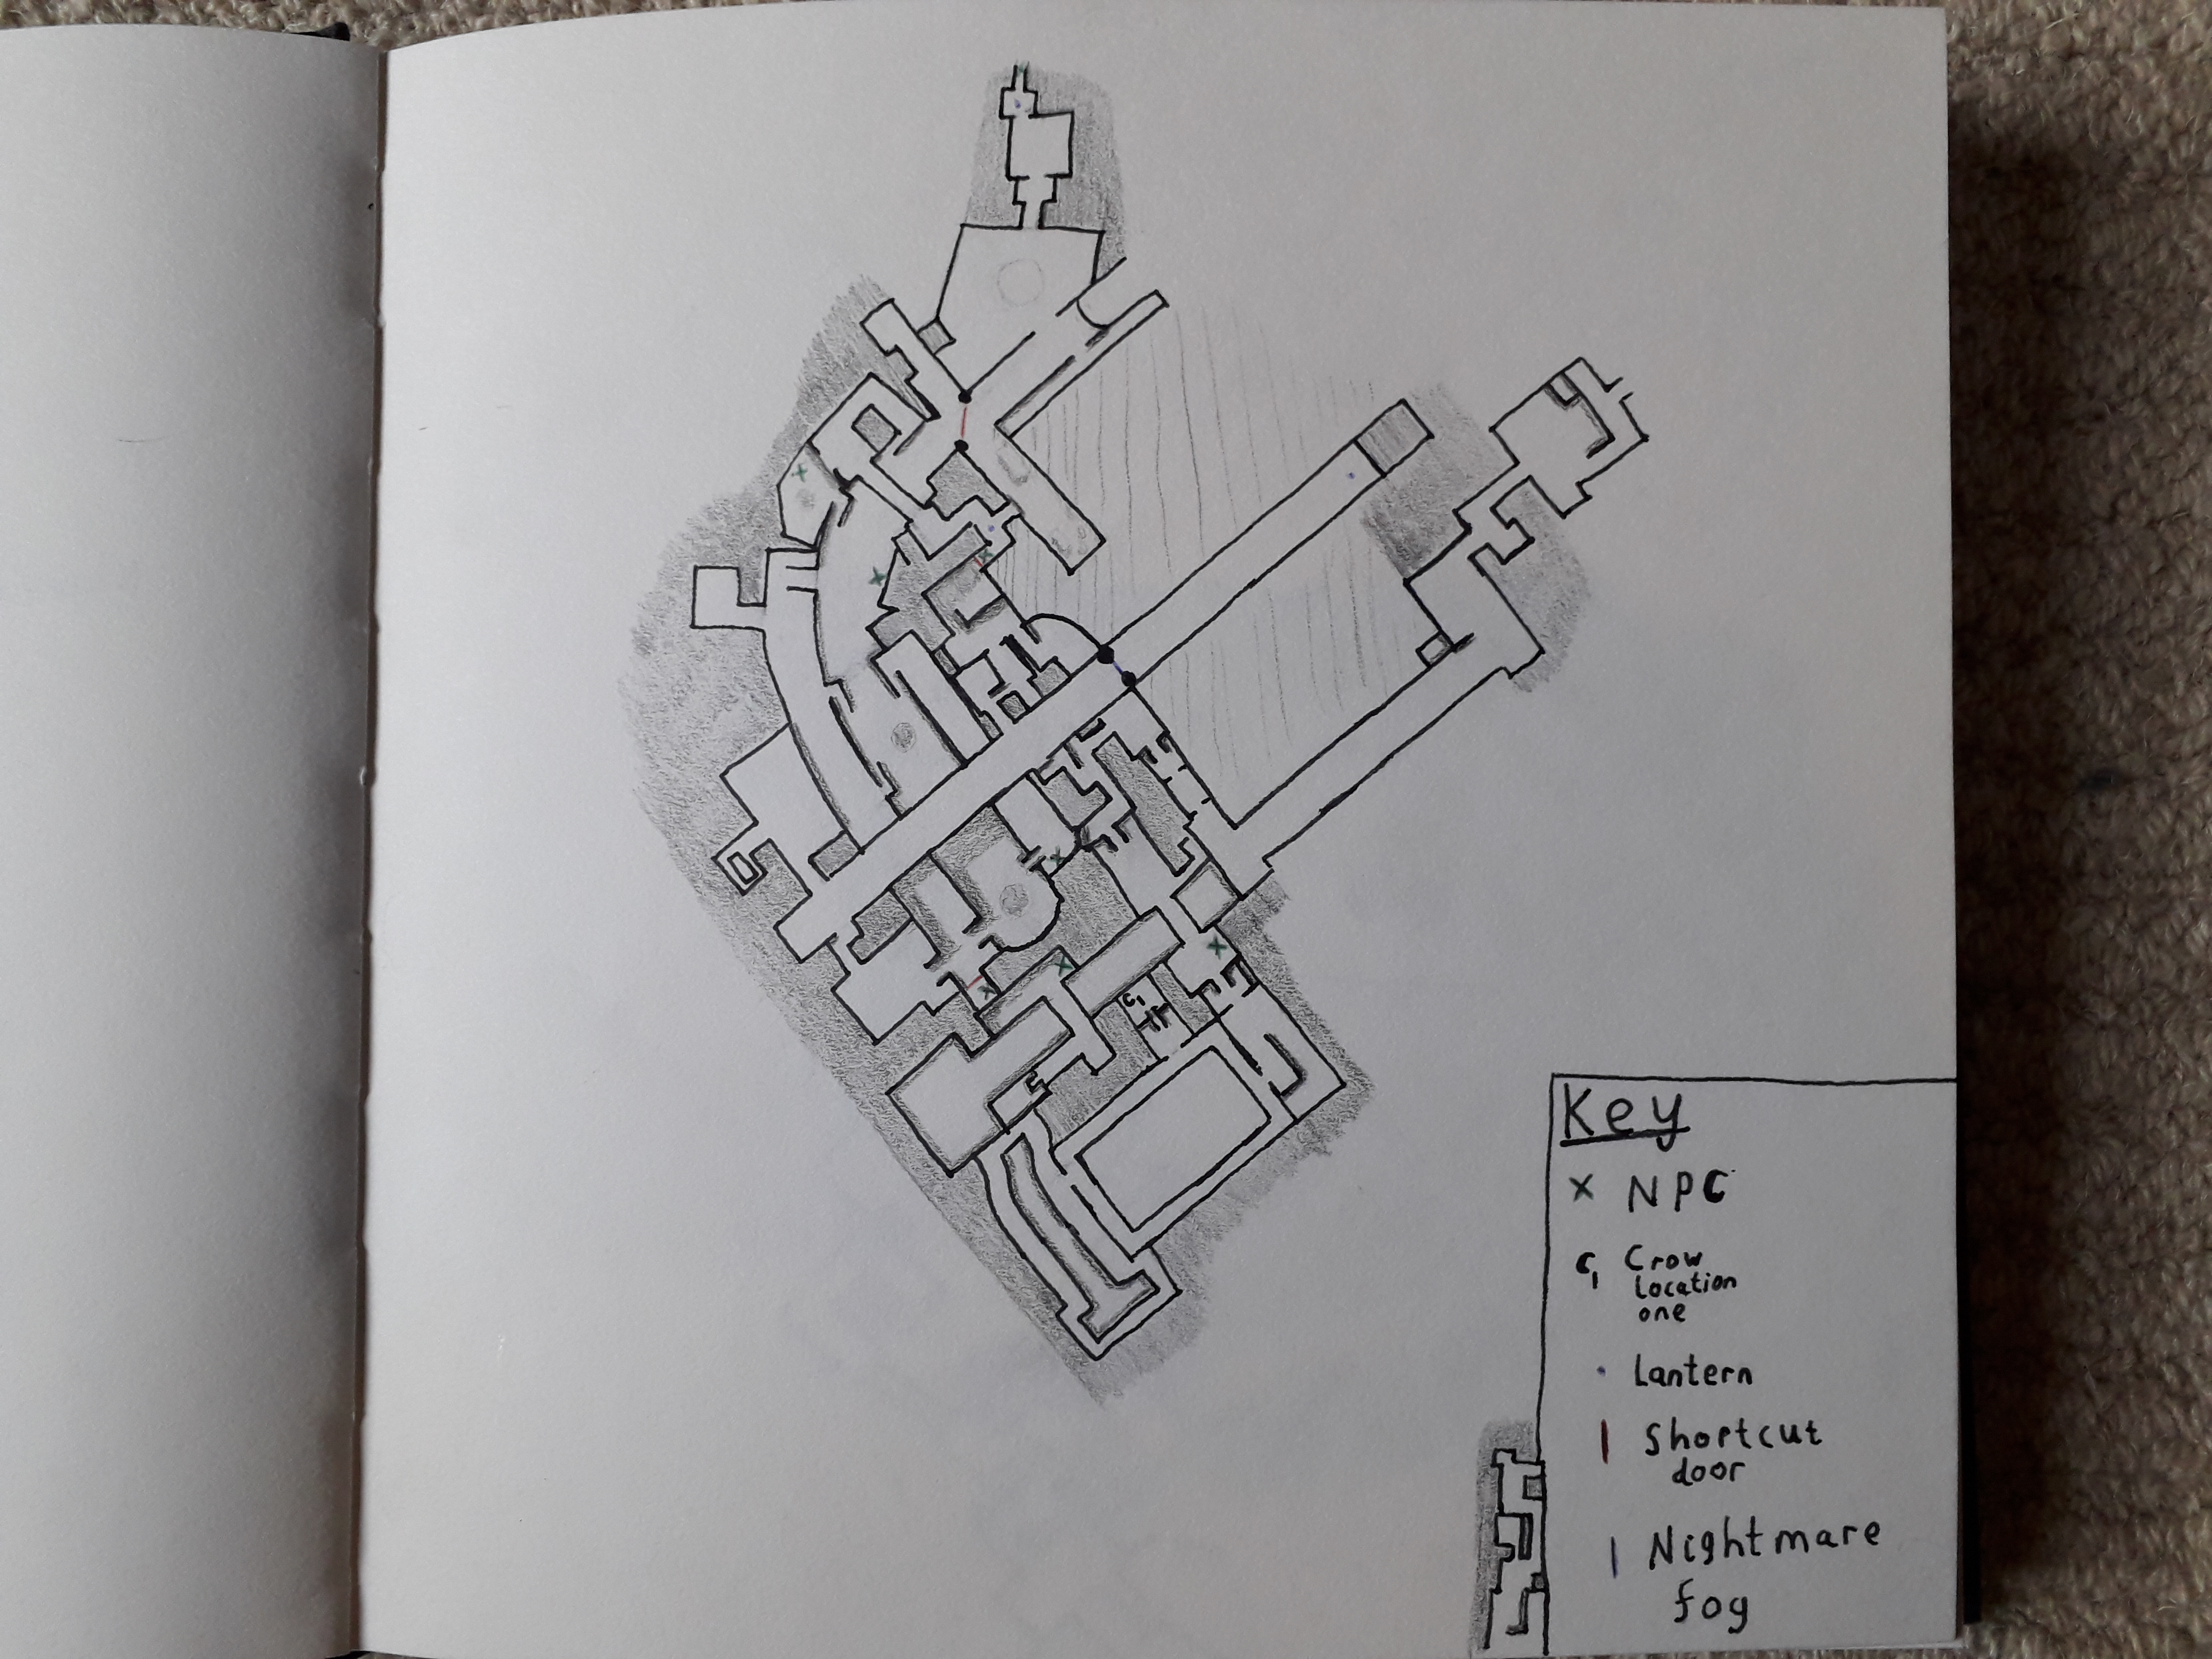 Key
x NPC
C1 Crow
Location
one
Lantern
Shortcut
door
Nightmare
fog
C1